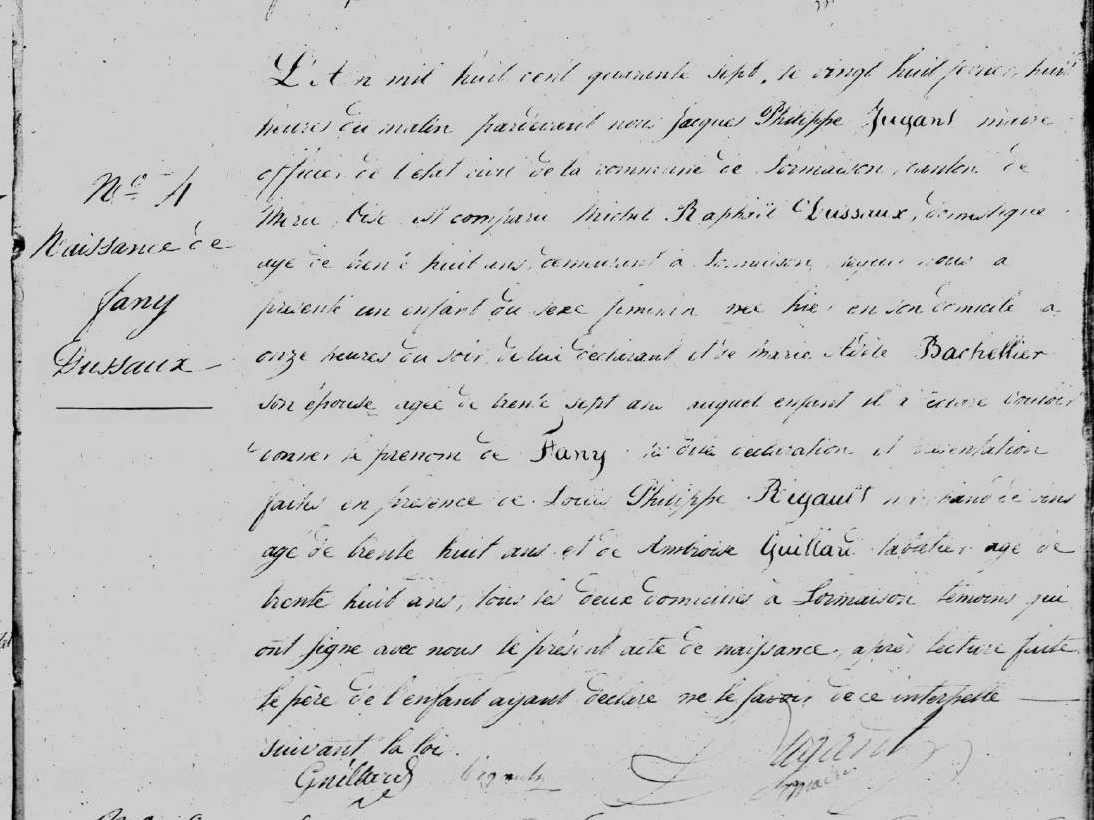 L'An mil huit cent quarante sept, le vingt huit fevrier, huit
heures du matin pardevant nous Jacques Philippe Jugant maire
officier de l'etat civil de la commune de Lormaison, canton de
Meru, Oise est comparu Michel Raphaël Dussaux, domestique
agé de trente huit ans, demeurant à Lormaison, lequel nous a
présenté un enfant du sexe feminin née hier en son domicile à
onze heures du soir, de lui declarant et de marie Adèle Bachellier
son épouse, agée de trente sept ans auquel enfant il a déclaré vouloir
donner le prénom de Fany les dites declaration et présentation
faites en présence de Louis Philippe Rigault marchand de vins
agé de trente huit ans et de Ambroise Guillard agé de
trente huit ans, tous les deux domiciliés à Lormaison témoins qui
ont signé avec nous le présent acte de naissance, après lecture faite
le père de l'enfant ayant déclaré ne le savoir de ce interpellé
suivant la loi.
N° 4
Naissance de
Fany
Dussaux
Guillard Rigault